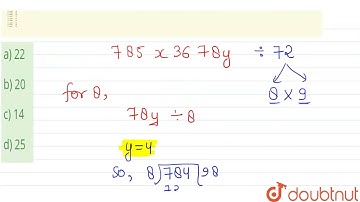 785 x 36 78y ÷ 72
a) 22
8 x 9
b) 20
for 8,
c) 14
78y ÷ 8
d) 25
y=4
So, 8 784 98
72
doubtnut